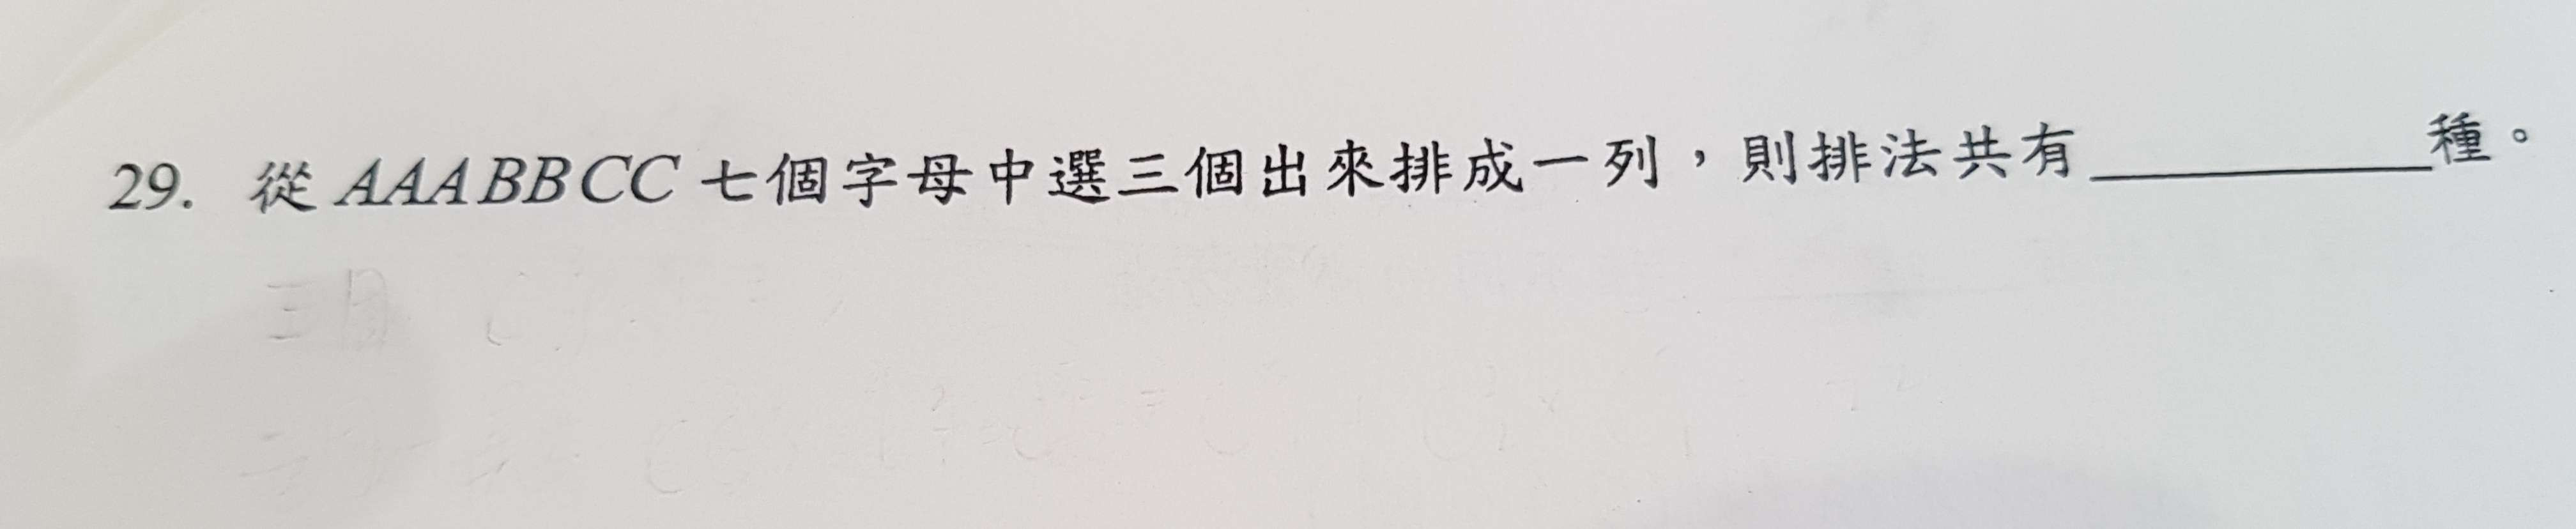 29. 從 AAABBCC 七個字母中選三個出來排成一列，則排法共有________種。